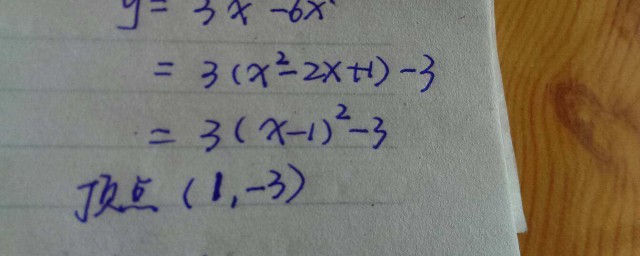 y= 3x -6x
= 3(x²-2x+1)-3
= 3(x-1)²-3
顶点(1,-3)